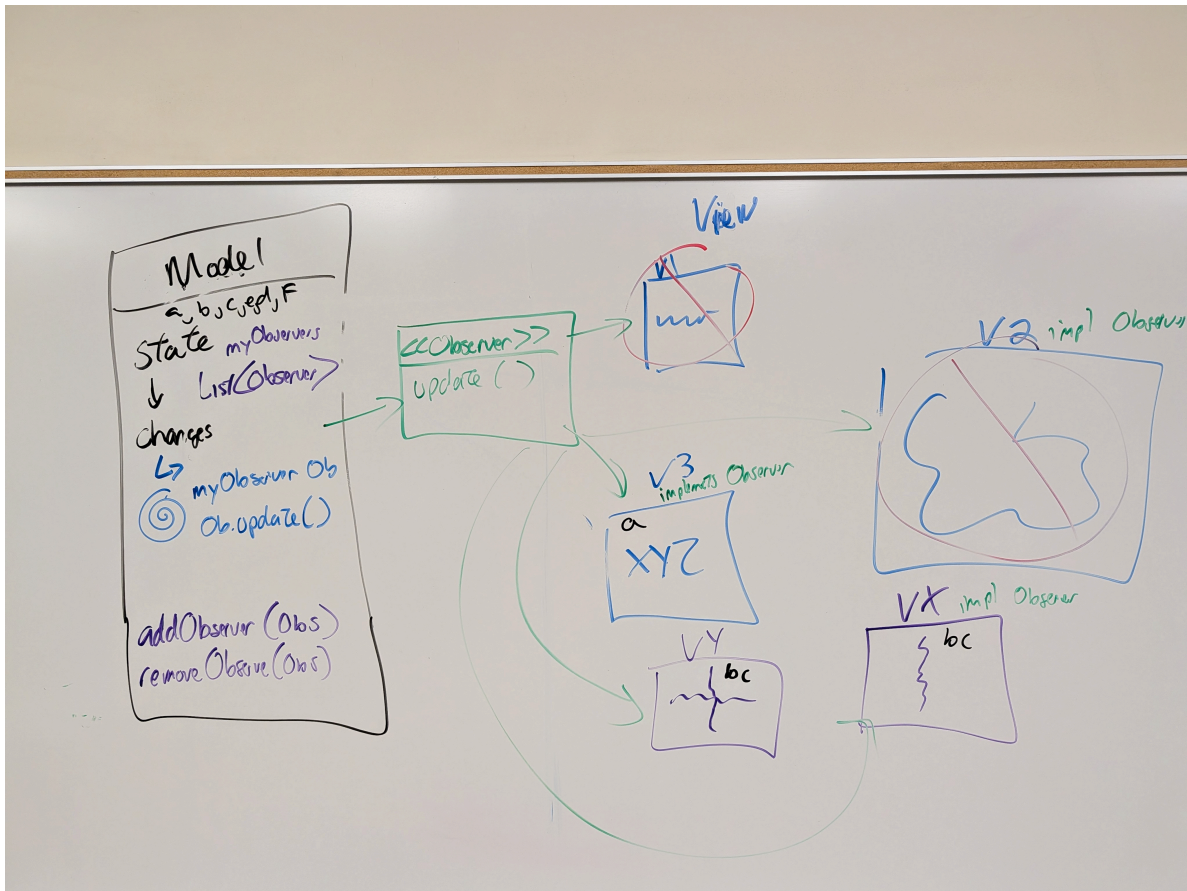 Model
a, b, c, e, d, F
State myObservers
List<Observer>
changes
myObserver Ob
Ob.update()
addObserver (Obs)
removeObserve(Obs)
<<Observer>>
update ()
View
V1
V2 impl Observer
V3
implemets Observer
a
XYZ
VX impl Observer
bc
VY
bc